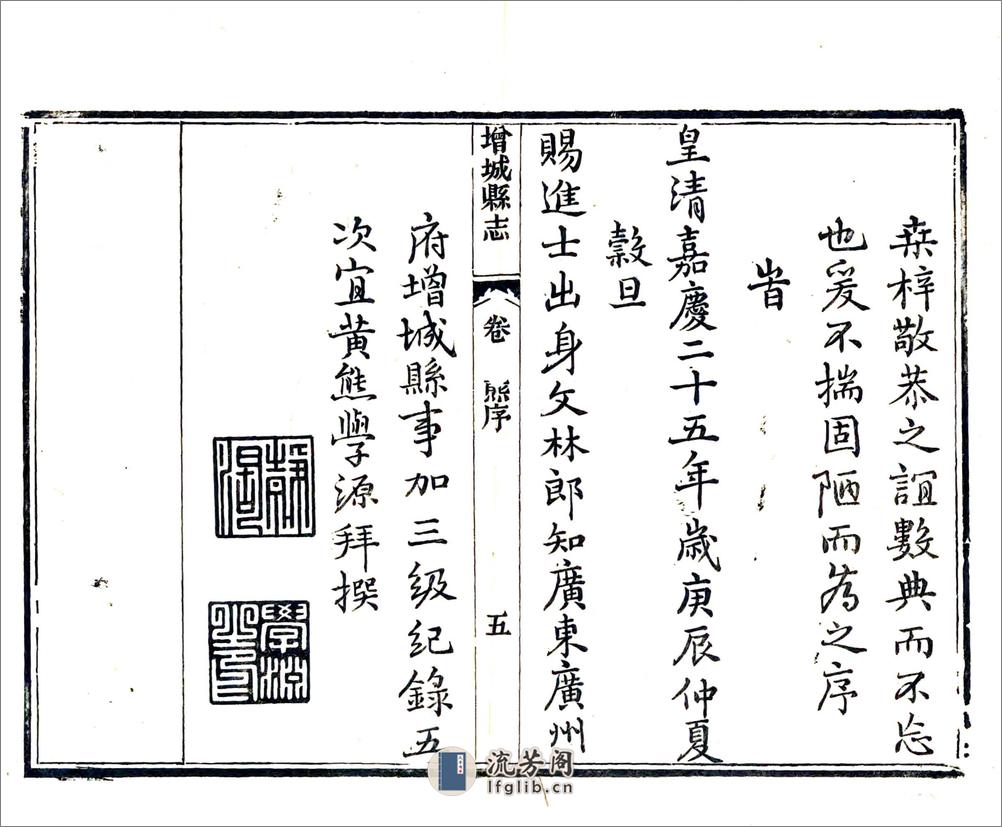 桒梓敬恭之誼數典而不忘
也爰不揣固陋而為之序
旹
皇清嘉慶二十五年歲庚辰仲夏
穀旦
賜進士出身文林郎知廣東廣州
增城縣志
卷
熊序
五
府增城縣事加三級紀錄五
次宜黃熊學源拜撰
學源
流芳阁
lfglib.cn